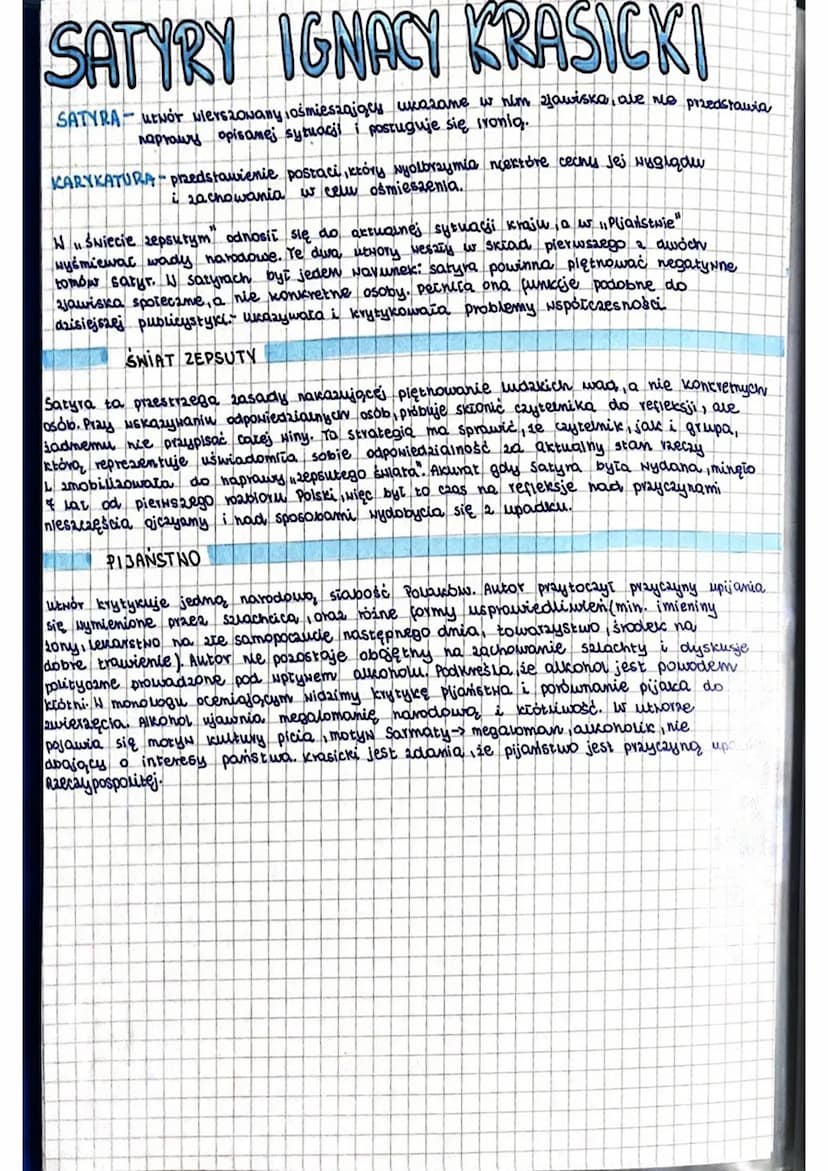 SATYRY IGNACY KRASICKI
SATYRA - utwór wierszowany, ośmieszający ukazane w nim zjawiska, ale nie przedstawia
naprawy opisanej sytuacji i posługuje się ironią.
KARYKATURA - przedstawienie postaci, który wyolbrzymia niektóre cechy jej wyglądu
i zachowania w celu ośmieszenia.
W „Świecie zepsutym" odnosił się do aktualnej sytuacji kraju, a w „Pijaństwie"
wyśmiewał wady narodowe. Te dwa utwory weszły w skład pierwszego z dwóch
tomów satyr. W satyrach był jeden warunek: satyra powinna piętnować negatywne
zjawiska społeczne, a nie konkretne osoby. Pełniła ona funkcje podobne do
dzisiejszej publicystyki - ukazywała i krytykowała problemy współczesności.
ŚWIAT ZEPSUTY
Satyra ta przestrzega zasady nakazującej piętnowanie ludzkich wad, a nie konkretnych
osób. Przy wskazywaniu odpowiedzialnych osób, próbuje skłonić czytelnika do refleksji, ale
żadnemu nie przypisać całej winy. Ta strategia ma sprawić, że czytelnik, jak i grupa,
którą reprezentuje uświadomiła sobie odpowiedzialność za aktualny stan rzeczy
i zmobilizowała do naprawy „zepsutego świata". Akurat gdy satyra była wydana, minęło
7 lat od pierwszego rozbioru Polski, więc był to czas na refleksje nad przyczynami
nieszczęścia ojczyzny i nad sposobami wydobycia się z upadku.
PIJAŃSTWO
Utwór krytykuje jedną narodową słabość Polaków. Autor przytoczył przyczyny upijania
się wymienione przez szlachcica, oraz różne formy usprawiedliwień (min. imieniny
żony, lekarstwo na złe samopoczucie następnego dnia, towarzystwo, środek na
dobre trawienie). Autor nie pozostaje obojętny na zachowanie szlachty i dyskusje
polityczne prowadzone pod wpływem alkoholu. Podkreśla, że alkohol jest powodem
kłótni. W monologu oceniającym widzimy krytykę pijaństwa i porównanie pijaka do
zwierzęcia. Alkohol ujawnia megalomanię narodową i kłótliwość. W utworze
pojawia się motyw kultury picia, motyw Sarmaty -> megaloman, alkoholik, nie
dbający o interesy państwa. Krasicki jest zdania, że pijaństwo jest przyczyną
Rzeczypospolitej.